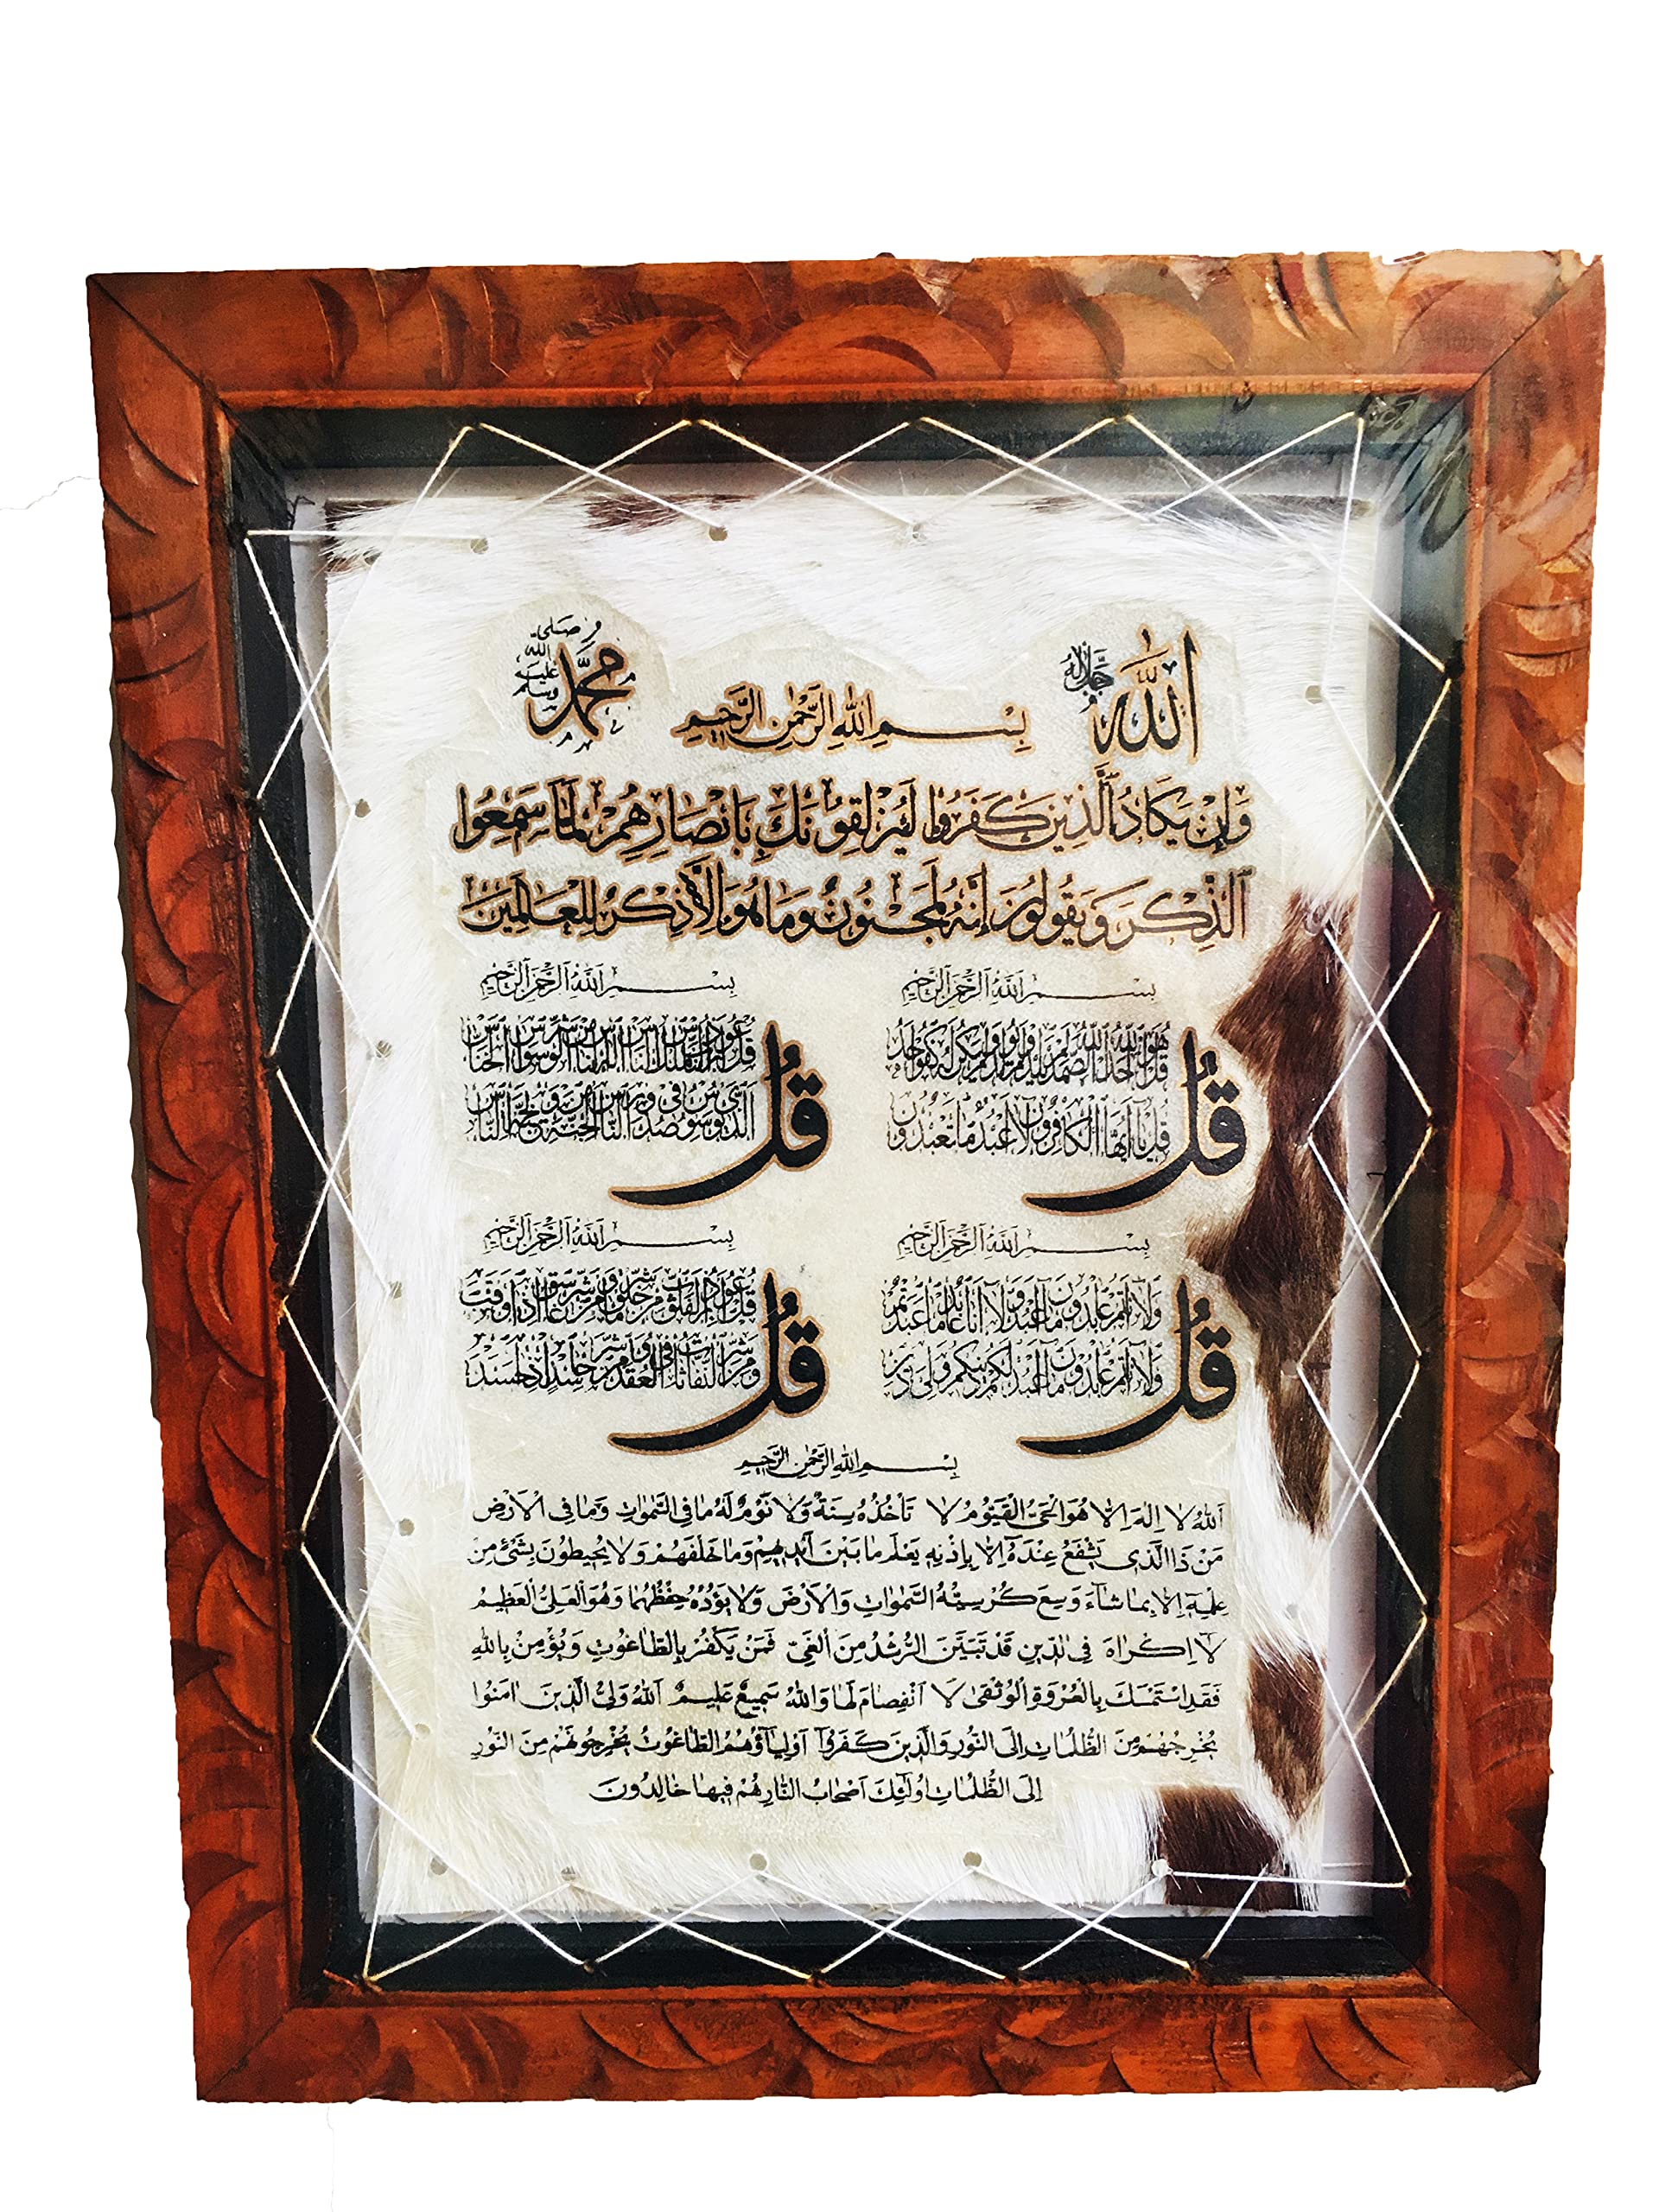 الله جل جلاله
محمد صلى الله عليه وسلم
بِسْمِ اللهِ الرَّحْمٰنِ الرَّحِيمِ
وَإِنْ يَكَادُ الَّذِينَ كَفَرُوا لَيُزْلِقُونَكَ بِأَبْصَارِهِمْ لَمَّا سَمِعُوا
الذِّكْرَ وَيَقُولُونَ إِنَّهُ لَمَجْنُونٌ وَمَا هُوَ إِلَّا ذِكْرٌ لِلْعَالَمِينَ
بِسْمِ اللَّهِ الرَّحْمَنِ الرَّحِيمِ
قُلْ
قُلْ هُوَ اللَّهُ أَحَدٌ اللَّهُ الصَّمَدُ لَمْ يَلِدْ وَلَمْ يُولَدْ وَلَمْ يَكُنْ لَهُ كُفُوًا أَحَدٌ
قُلْ يَا أَيُّهَا الْكَافِرُونَ لَا أَعْبُدُ مَا تَعْبُدُونَ
بِسْمِ اللَّهِ الرَّحْمَنِ الرَّحِيمِ
قُلْ
قُلْ أَعُوذُ بِرَبِّ النَّاسِ مَلِكِ النَّاسِ إِلَهِ النَّاسِ مِنْ شَرِّ الْوَسْوَاسِ الْخَنَّاسِ
الَّذِي يُوَسْوِسُ فِي صُدُورِ النَّاسِ مِنَ الْجِنَّةِ وَالنَّاسِ
بِسْمِ اللَّهِ الرَّحْمَنِ الرَّحِيمِ
قُلْ
وَلَا أَنْتُمْ عَابِدُونَ مَا أَعْبُدُ وَلَا أَنَا عَابِدٌ مَا عَبَدْتُمْ
وَلَا أَنْتُمْ عَابِدُونَ مَا أَعْبُدُ لَكُمْ دِينُكُمْ وَلِيَ دِينِ
بِسْمِ اللَّهِ الرَّحْمَنِ الرَّحِيمِ
قُلْ
قُلْ أَعُوذُ بِرَبِّ الْفَلَقِ مِنْ شَرِّ مَا خَلَقَ وَمِنْ شَرِّ غَاسِقٍ إِذَا وَقَبَ
وَمِنْ شَرِّ النَّفَّاثَاتِ فِي الْعُقَدِ وَمِنْ شَرِّ حَاسِدٍ إِذَا حَسَدَ
بِسْمِ اللهِ الرَّحْمٰنِ الرَّحِيمِ
اَللهُ لَا اِلٰهَ اِلَّا هُوَ الْحَيُّ الْقَيُّومُ لَا تَأْخُذُهُ سِنَةٌ وَلَا نَوْمٌ لَهُ مَا فِي السَّمٰوَاتِ وَمَا فِي الْاَرْضِ
مَنْ ذَا الَّذِي يَشْفَعُ عِنْدَهُ اِلَّا بِاِذْنِهِ يَعْلَمُ مَا بَيْنَ اَيْدِيهِمْ وَمَا خَلْفَهُمْ وَلَا يُحِيطُونَ بِشَيْءٍ مِنْ
عِلْمِهِ اِلَّا بِمَا شَاءَ وَسِعَ كُرْسِيُّهُ السَّمٰوَاتِ وَالْاَرْضَ وَلَا يَؤُدُهُ حِفْظُهُمَا وَهُوَ الْعَلِيُّ الْعَظِيمُ
لَا اِكْرَاهَ فِي الدِّينِ قَدْ تَبَيَّنَ الرُّشْدُ مِنَ الْغَيِّ فَمَنْ يَكْفُرْ بِالطَّاغُوتِ وَيُؤْمِنْ بِاللهِ
فَقَدِ اسْتَمْسَكَ بِالْعُرْوَةِ الْوُثْقٰى لَا انْفِصَامَ لَهَا وَاللهُ سَمِيعٌ عَلِيمٌ اَللهُ وَلِيُّ الَّذِينَ اٰمَنُوا
يُخْرِجُهُمْ مِنَ الظُّلُمَاتِ اِلَى النُّورِ وَالَّذِينَ كَفَرُوا اَوْلِيَاؤُهُمُ الطَّاغُوتُ يُخْرِجُونَهُمْ مِنَ النُّورِ
اِلَى الظُّلُمَاتِ اُولٰئِكَ اَصْحَابُ النَّارِ هُمْ فِيهَا خَالِدُونَ